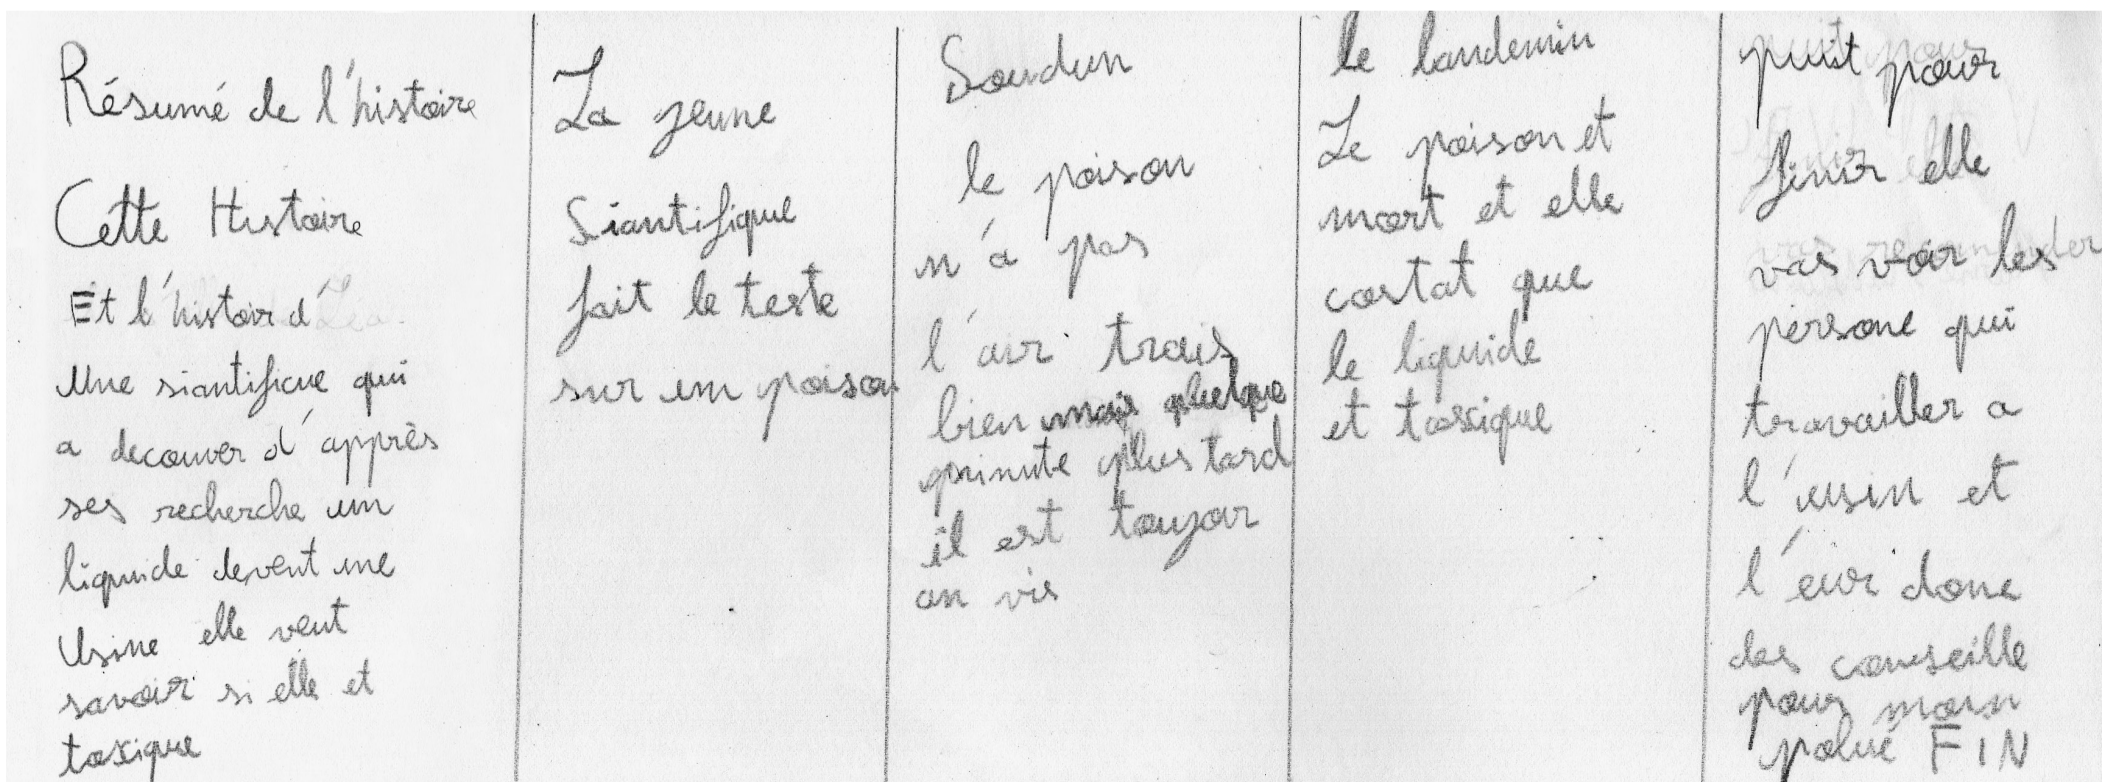 Résumé de l'histoire
Cette Histoire
Et l'histoir d'
Une siantifique qui
a decouver d'apprès
ses recherche un
liquide devent une
Usine elle veut
savoir si elle et
toxique
La jeune
Siantifique
fait le teste
sur un poison
Soudun
le poison
n'a pas
l'air trais
bien mais quelque
minute plus tard
il est toujour
an vis
le landemin
Le poison et
mort et elle
costat que
le liquide
et toxique
puit pour
finir elle
vas voir les
persone qui
travailler a
l'usin et
l'eur done
des conseille
pour moin
polué FIN